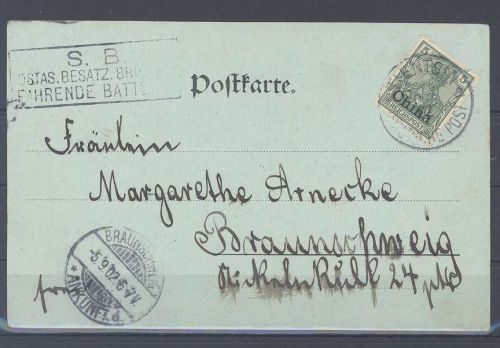 S. B.
OSTAS. BESATZ. BRIG
FAHRENDE BATT
Postkarte.
5 5
China
POST
Fräulein
Margarethe Arnecke
Braunschweig
24 ptr
BRAUNSCHWEIG
5.9.02.6-7V
* ANKUNFT